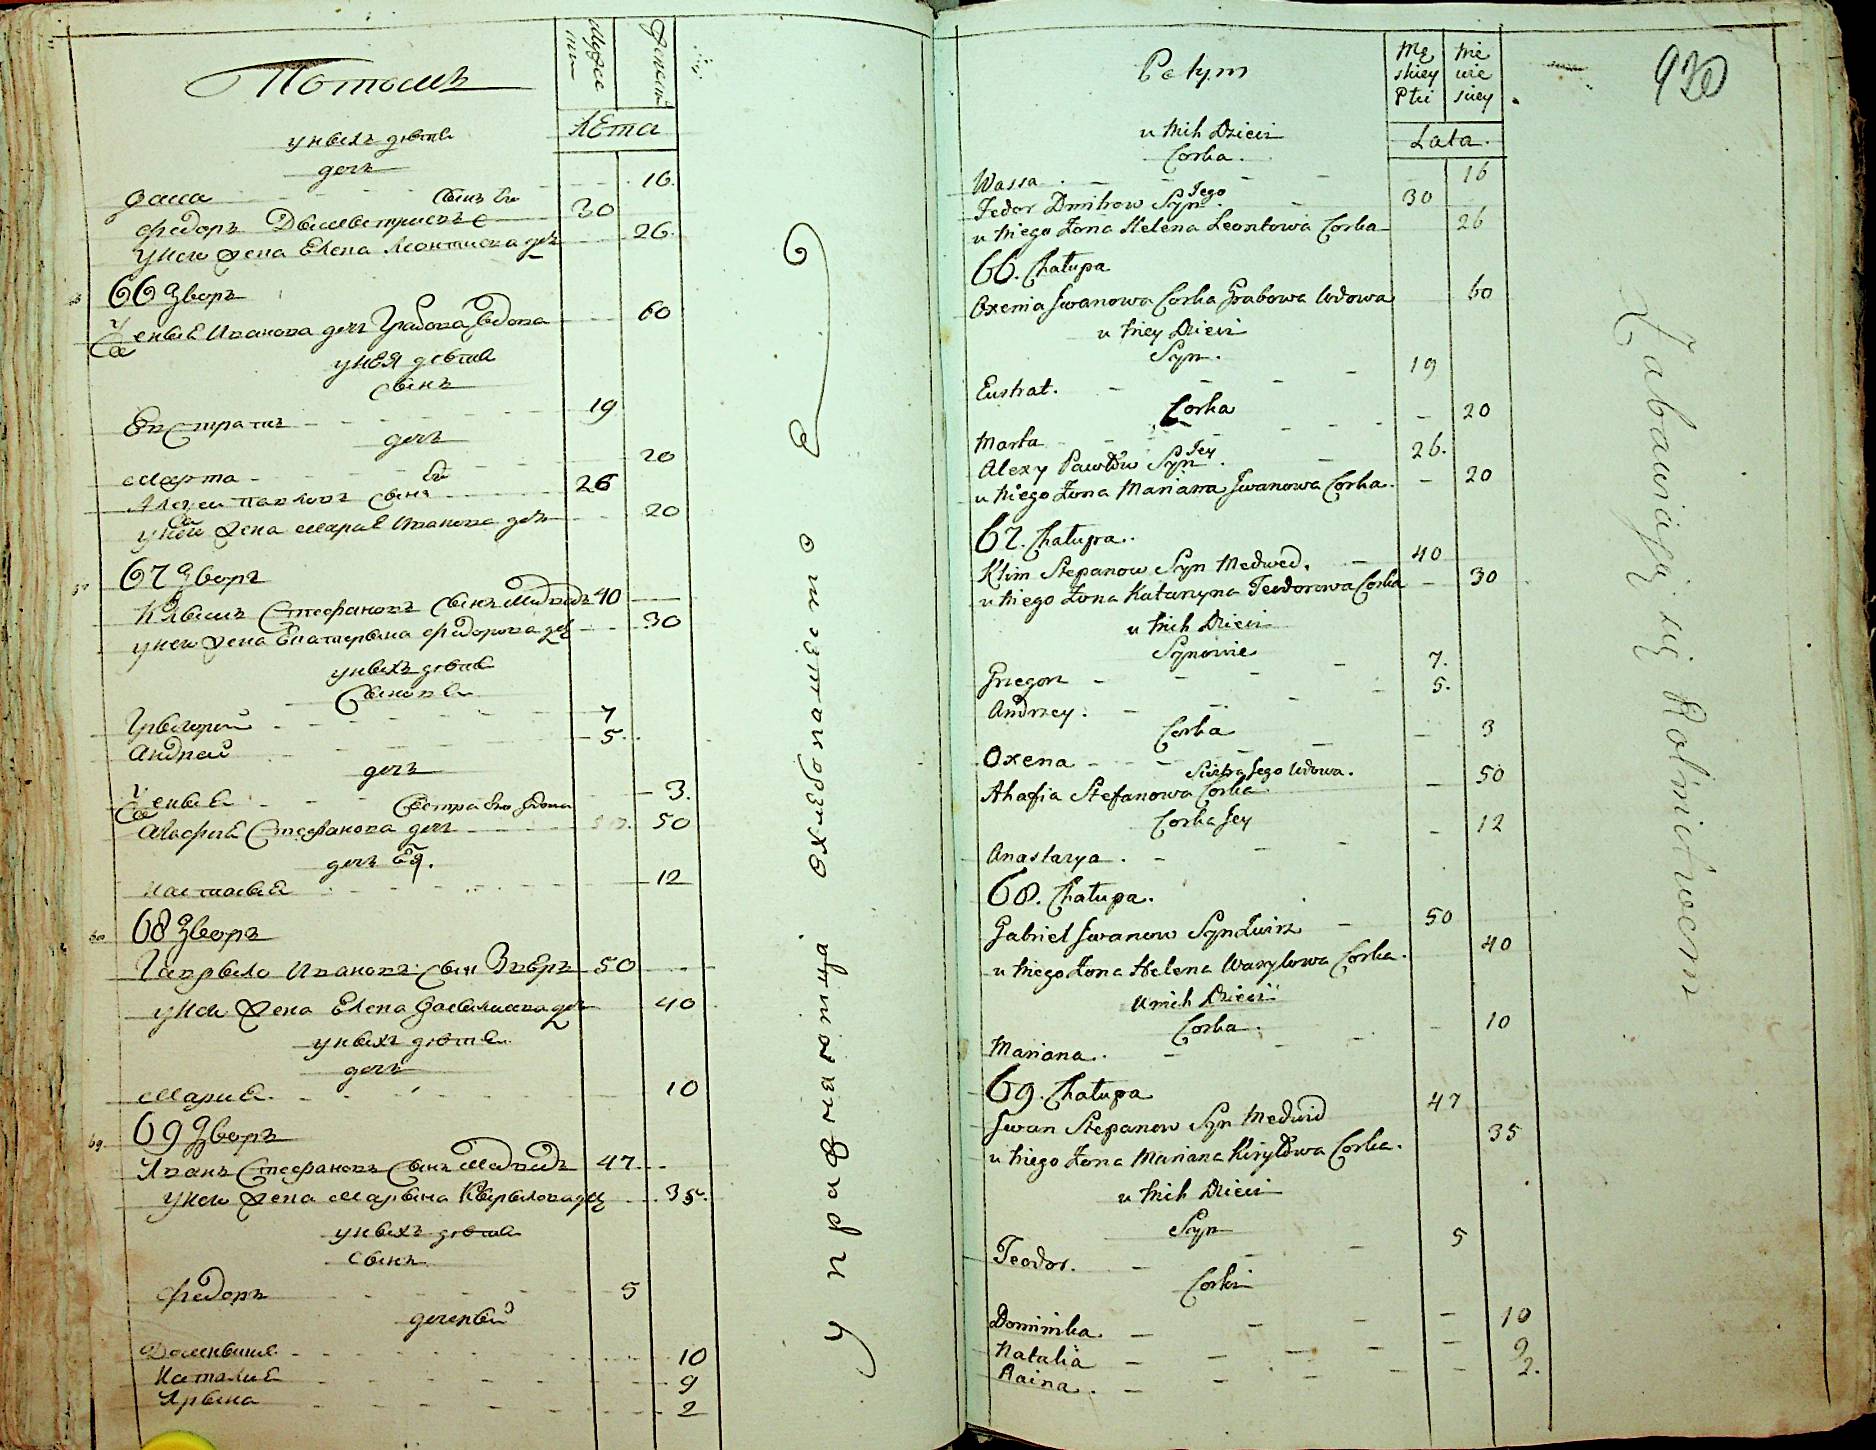 Потомъ
Мужес
тии
Женст
Лѣта
у нихъ дѣти
дочъ
Васса 16.
сынъ Ея
Федоръ 30
у нево жена Елена Леонтиева дочь 26.
66 Дворъ
Ксенья Иванова дочь Грабова вдова 60
у нея дѣти
сынъ
Евстратъ 19
дочъ
Марта 20
Ея
Алексеи Павловъ сынъ 26
у нево жена Мария Иванова дочь 20
67 Дворъ
Климъ Стефановъ сынъ Медвидь 40
у нево жена Екатерина Федорова дочь 30
у нихъ дѣти
сынови
Григорий 7
Андрей 5
дочъ
Ксения 3.
Сестра Ево вдова
Агафия Стефанова дочь 50
дочъ Ея.
Настасия 12
68 Дворъ
Гаврило Ивановъ сын Звѣръ 50
у нево жена Елена Василиева дочь 40
у нихъ дѣти
дочъ
Мария 10
69 Дворъ
69
Иванъ Стефановъ сынъ Медвидь 47
у нево жена Марина Кирилова дочь 35.
у нихъ дѣти
сынъ
Федоръ 5
дочерьи
Доминика 10
Наталия 9
Ирина 2
упражнаютца охлебопашество
Potym
Mę
skiey
Płci
Że
nie
skiey
Lata.
930
u nich Dzieci
Corka.
Wassa 16
Jego
Fedor Dmitrow Syn 30
u niego Zona Helena Leontowa Corka 26
66. Chałupa
Oxenia Iwanowa Corka Grabowa Wdowa 60
u niey Dzieci
Syn.
Eustrat. 19
Corka
Marta 20
Jey
Alexy Pawłów Syn 26.
u niego Zona Marianna Iwanowa Corka. 20
67. Chałupa.
Klim Stepanow Syn Medwed. 40
u niego Zona Katarzyna Teodorowa Corka 30
u nich Dzieci
Synowie
Grzegorz 7.
Andrzey. 5.
Corka
Oxena 3
Siostra Jego Wdowa.
Ahafia Stefanowa Corka 50
Corka Jey
Anastazya. 12
68. Chałupa.
Gabriel Iwanow Syn Zwirz 50
u niego Zona Helena Wasylowa Corka. 40
U nich Dzieci
Corka.
Mariana. 10
69. Chałupa
Iwan Stepanow Syn Medwid 47
u niego Zona Mariana Kiryłowa Corka. 35
u nich Dzieci
Syn
Teodor. 5
Corki
Dominika. 10
Natalia 9
Raina. 2.
Zabawiaią się Rolnictwem